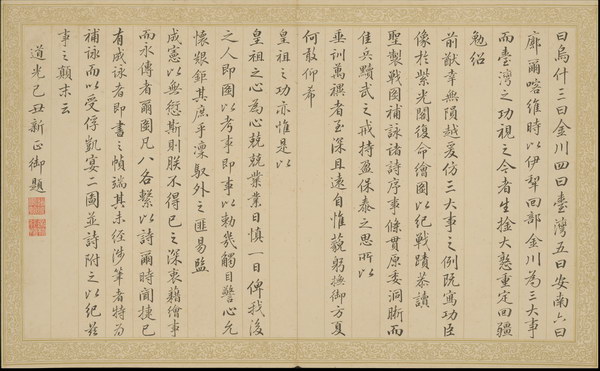 曰烏什三曰金川四曰臺灣五曰安南六曰
廓爾喀維時以伊犁回部金川為三大事
而臺灣之功視之今者生擒大憝重定回疆
勉紹
前猷幸無隕越爰仿三大事之例既寫功臣
像於紫光閣復命繪圖以紀戰蹟恭讀
聖製戰圖補詠諸詩序事條貫原委洞晰而
佳兵黷武之戒持盈保泰之思所以
垂訓萬禩者至深且遠自惟藐躬撫御方夏
何敢仰希
皇祖之功亦惟是以
皇祖之心為心兢兢業業日慎一日俾我後
之人即圖以考事即事以勅幾觸目警心允
懷艱鉅其庶乎凜馭外之匪易監
成憲以無愆斯則朕不得已之深衷藉繪事
而永傳者爾圖凡八各繫以詩爾時聞捷已
有咸詠者即書之幀端其未經涉筆者特為
補詠而以受俘凱宴二圖並詩附之以紀茲
事之顛末云
道光己丑新正御題